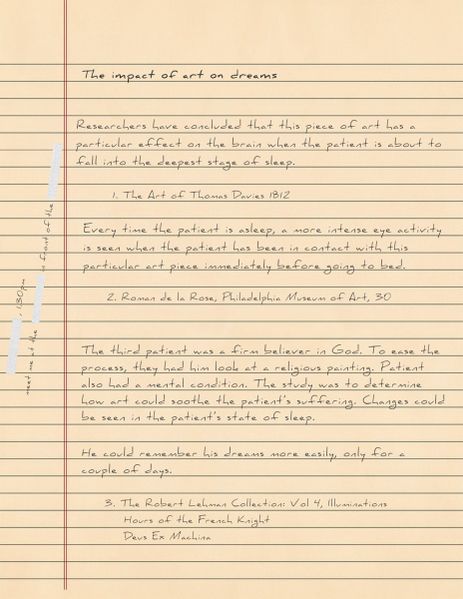 The impact of art on dreams
Researchers have concluded that this piece of art has a
particular effect on the brain when the patient is about to
fall into the deepest stage of sleep.
1. The Art of Thomas Davies 1812
Every time the patient is asleep, a more intense eye activity
is seen when the patient has been in contact with this
particular art piece immediately before going to bed.
2. Roman de la Rose, Philadelphia Museum of Art, 30
The third patient was a firm believer in God. To ease the
process, they had him look at a religious painting. Patient
also had a mental condition. The study was to determine
how art could soothe the patient's suffering. Changes could
be seen in the patient's state of sleep.
He could remember his dreams more easily, only for a
couple of days.
3. The Robert Lehman Collection: Vol 4, Illuminations
Hours of the French Knight
Deus Ex Machina
, 1:30pm
meet me at the
in front of the